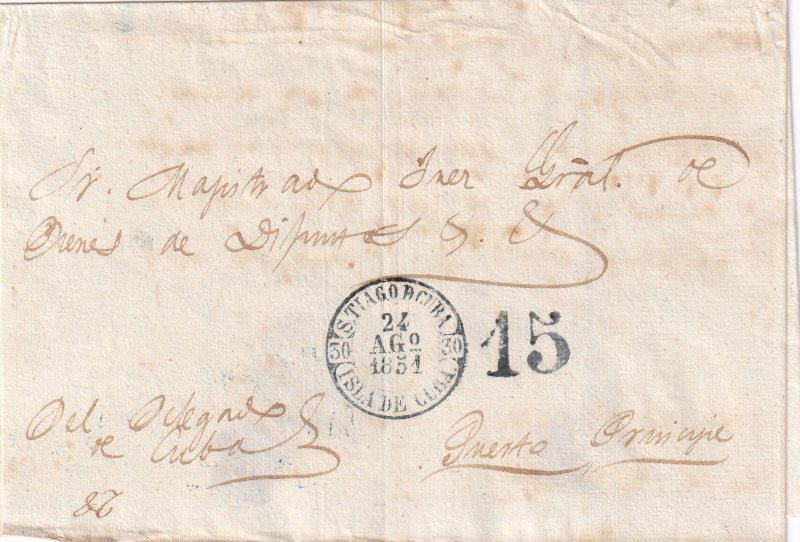 Sr. Magistrado Juez Gral. de
Bienes de Difuntos &. &
S.TIAGO D CUBA
24
AGº
1851
30 30
ISLA DE CUBA
15
Del Delegado
de Cuba
Puerto Principe